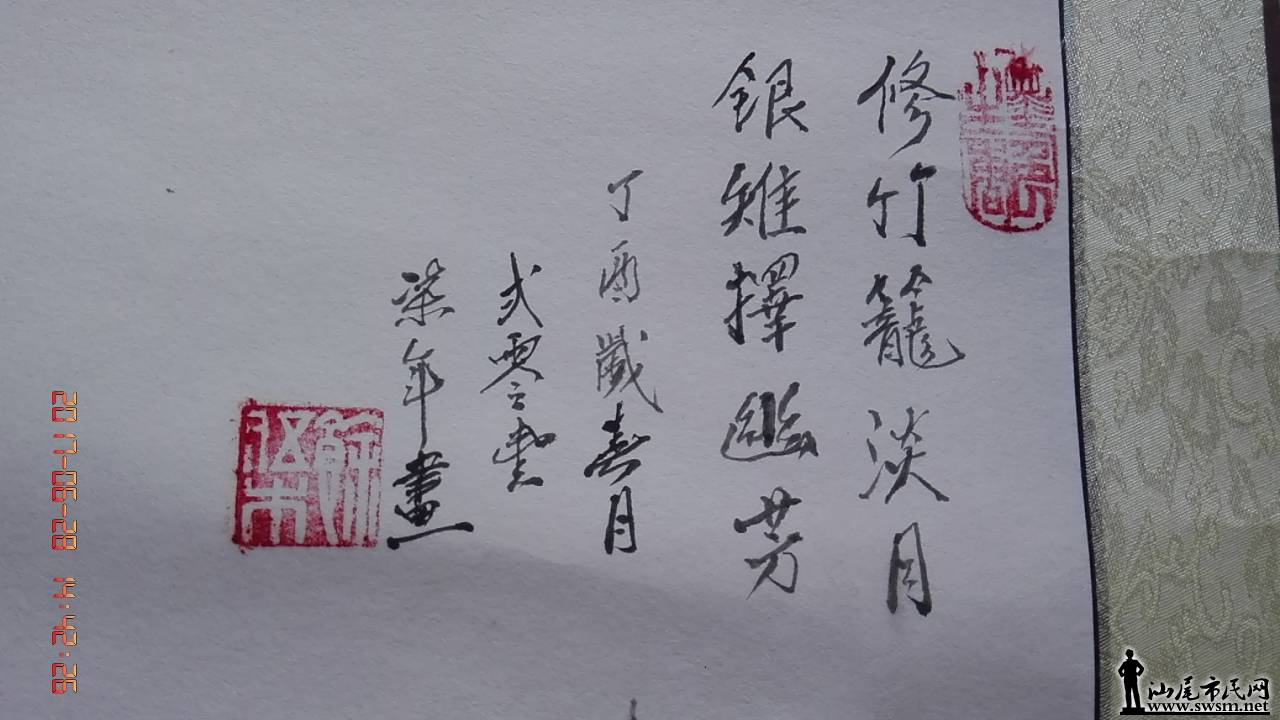 修竹籠淡月
銀雉擇幽芳
丁酉歲春月
弍零壹
柒年畫
2017-06-28 14:42:26
汕尾市民网
www.swsm.net